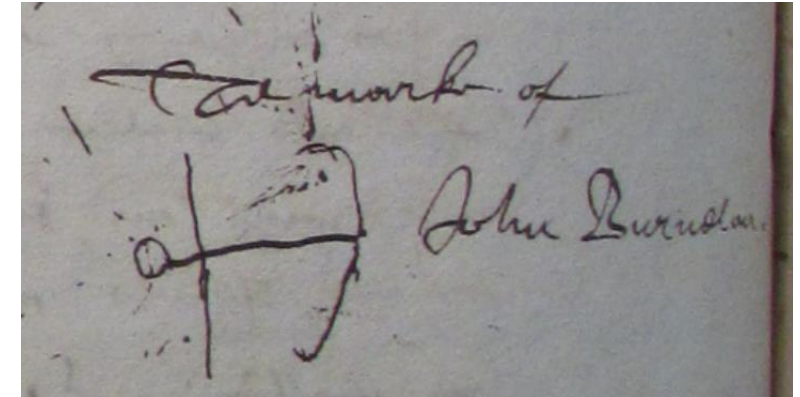 The marke of
John Burnden